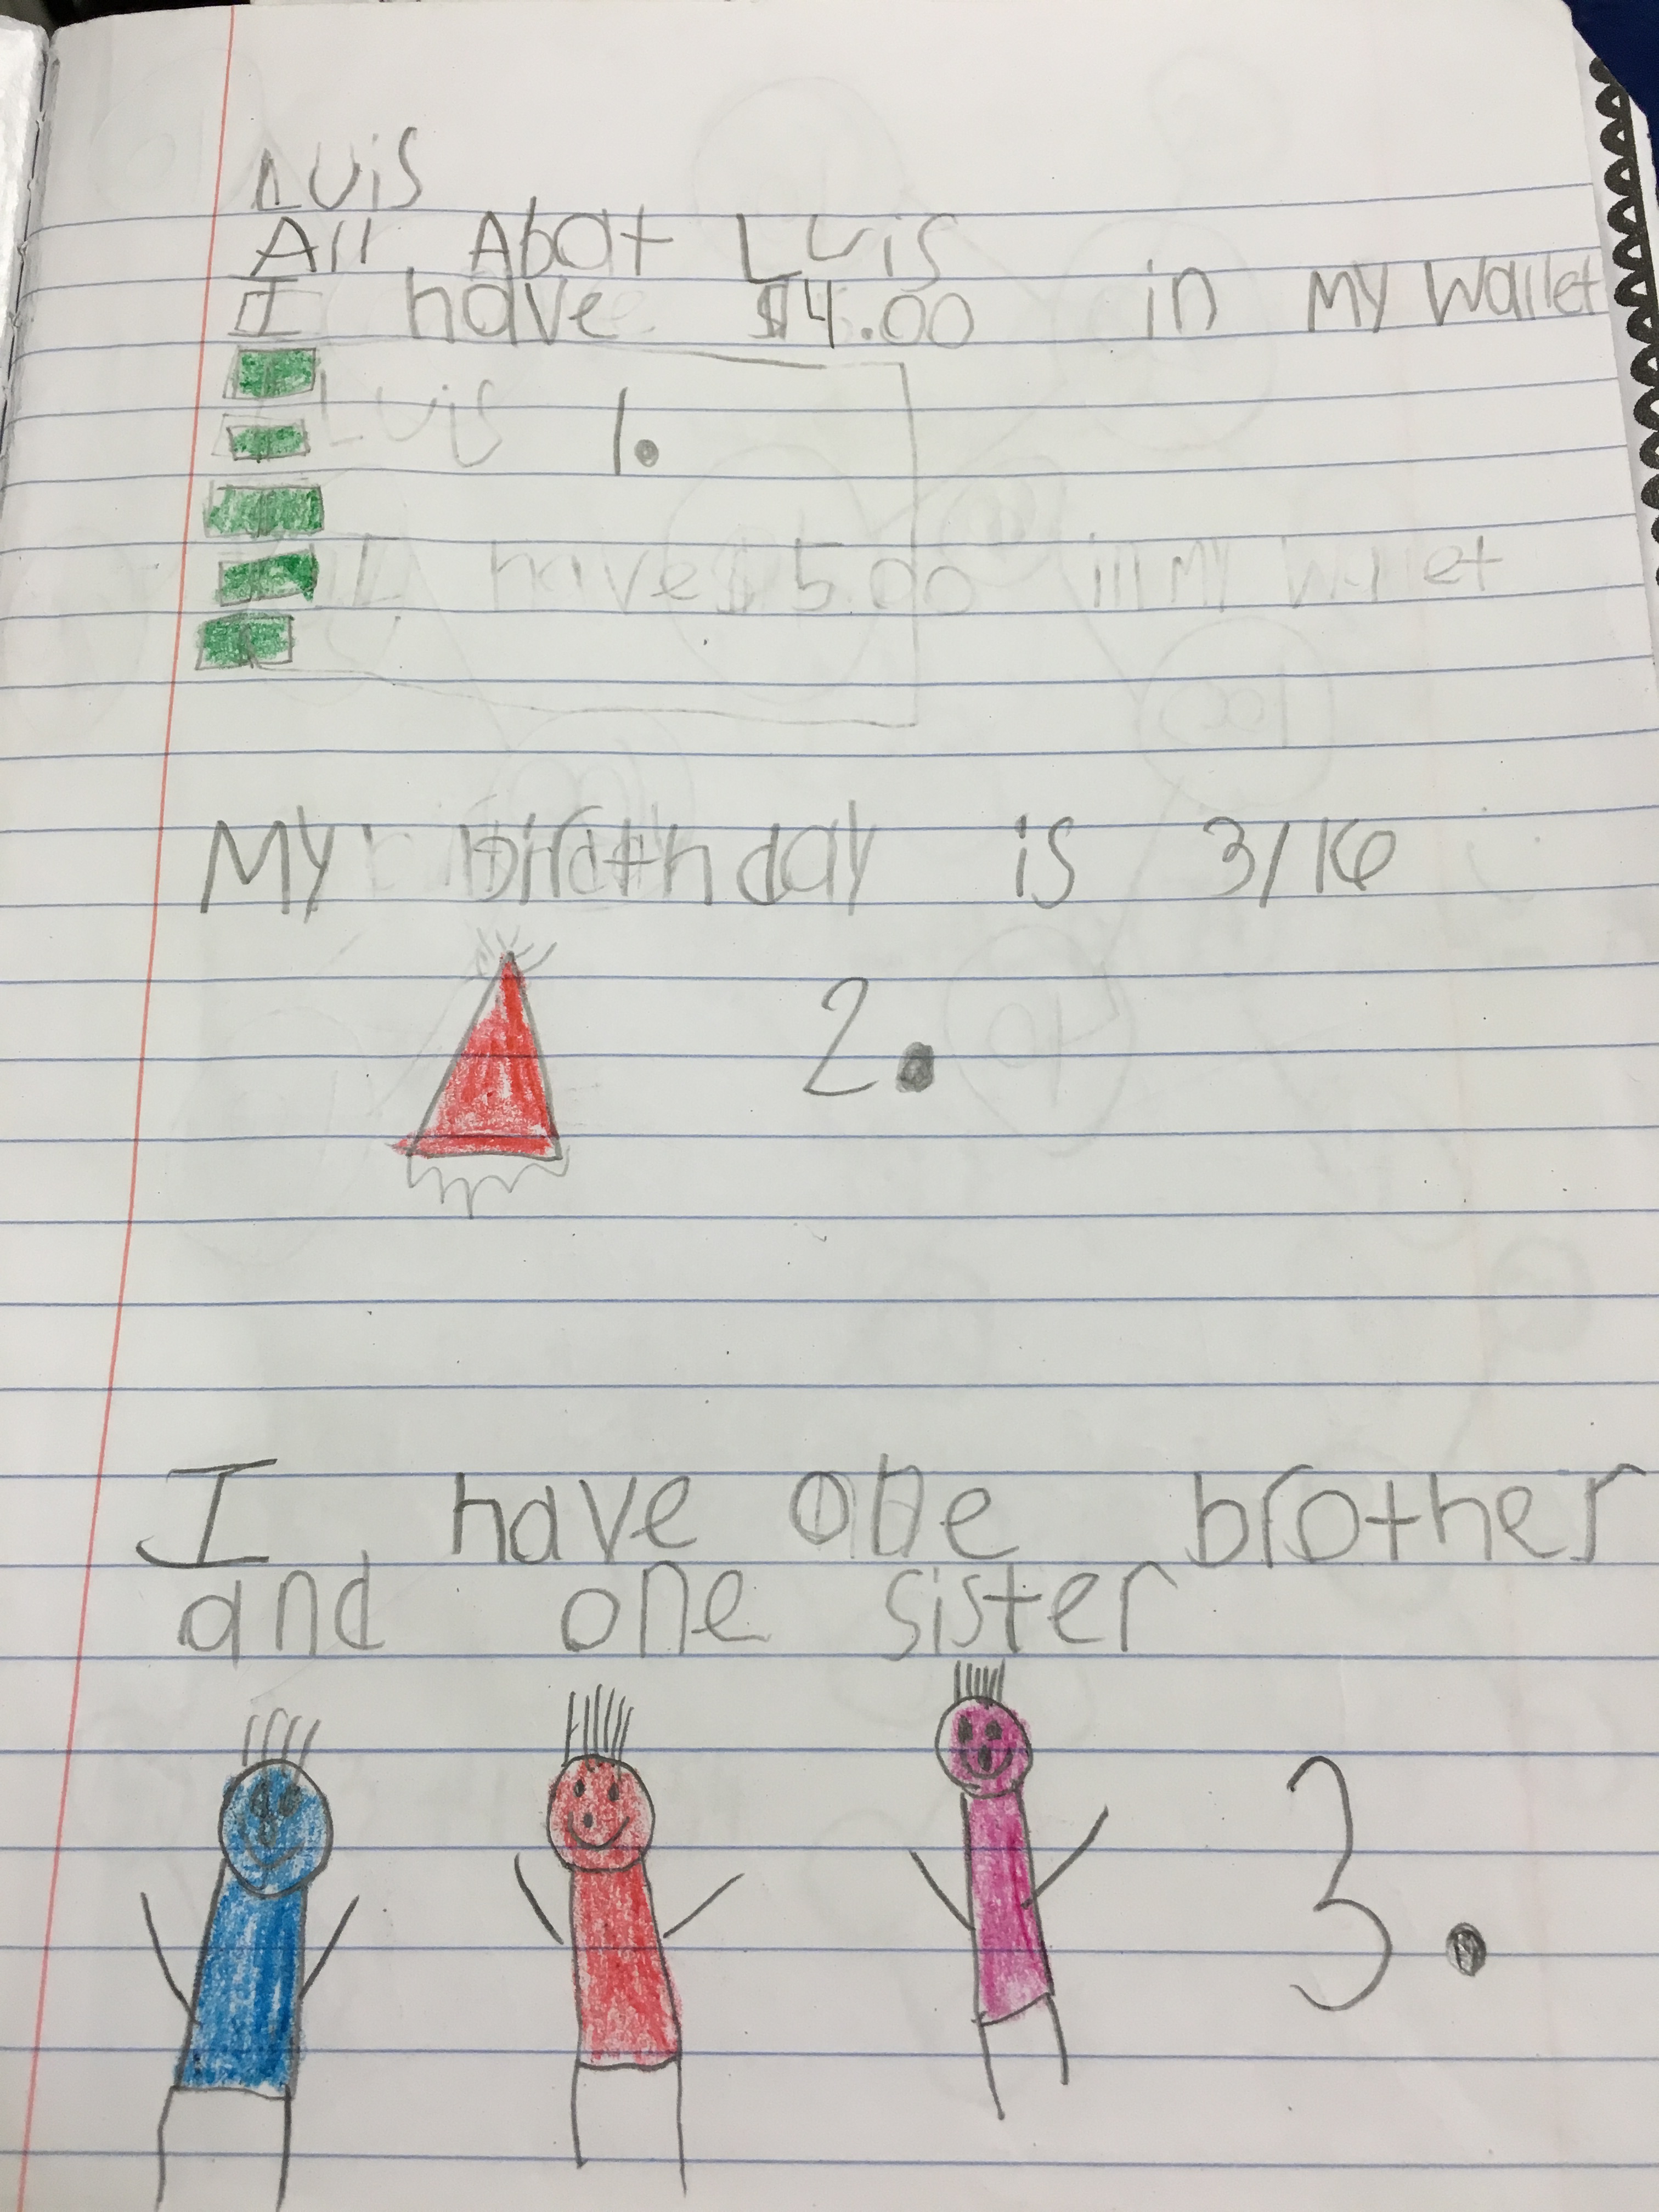 Luis
All Abat Luis
I have $4.00 in My Wallet
Luis 1.
I have $5.00 in My Wallet
My birthday is 3/16
2.
I have one brother
and one sister
3.